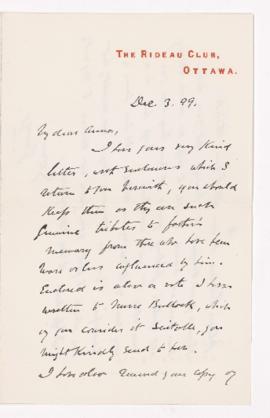 THE RIDEAU CLUB,
OTTAWA.
Dec. 3. 99.
My dear
I have your very kind
letter, with enclosures which I
return to you herewith, you should
keep them as they are such
genuine tributes to
memory from those who have been
more or less influenced by him.
Enclosed is also a note I have
written to Nurse Bullock, which
if you consider it suitable, you
might kindly send to her.
I have also received your copy of